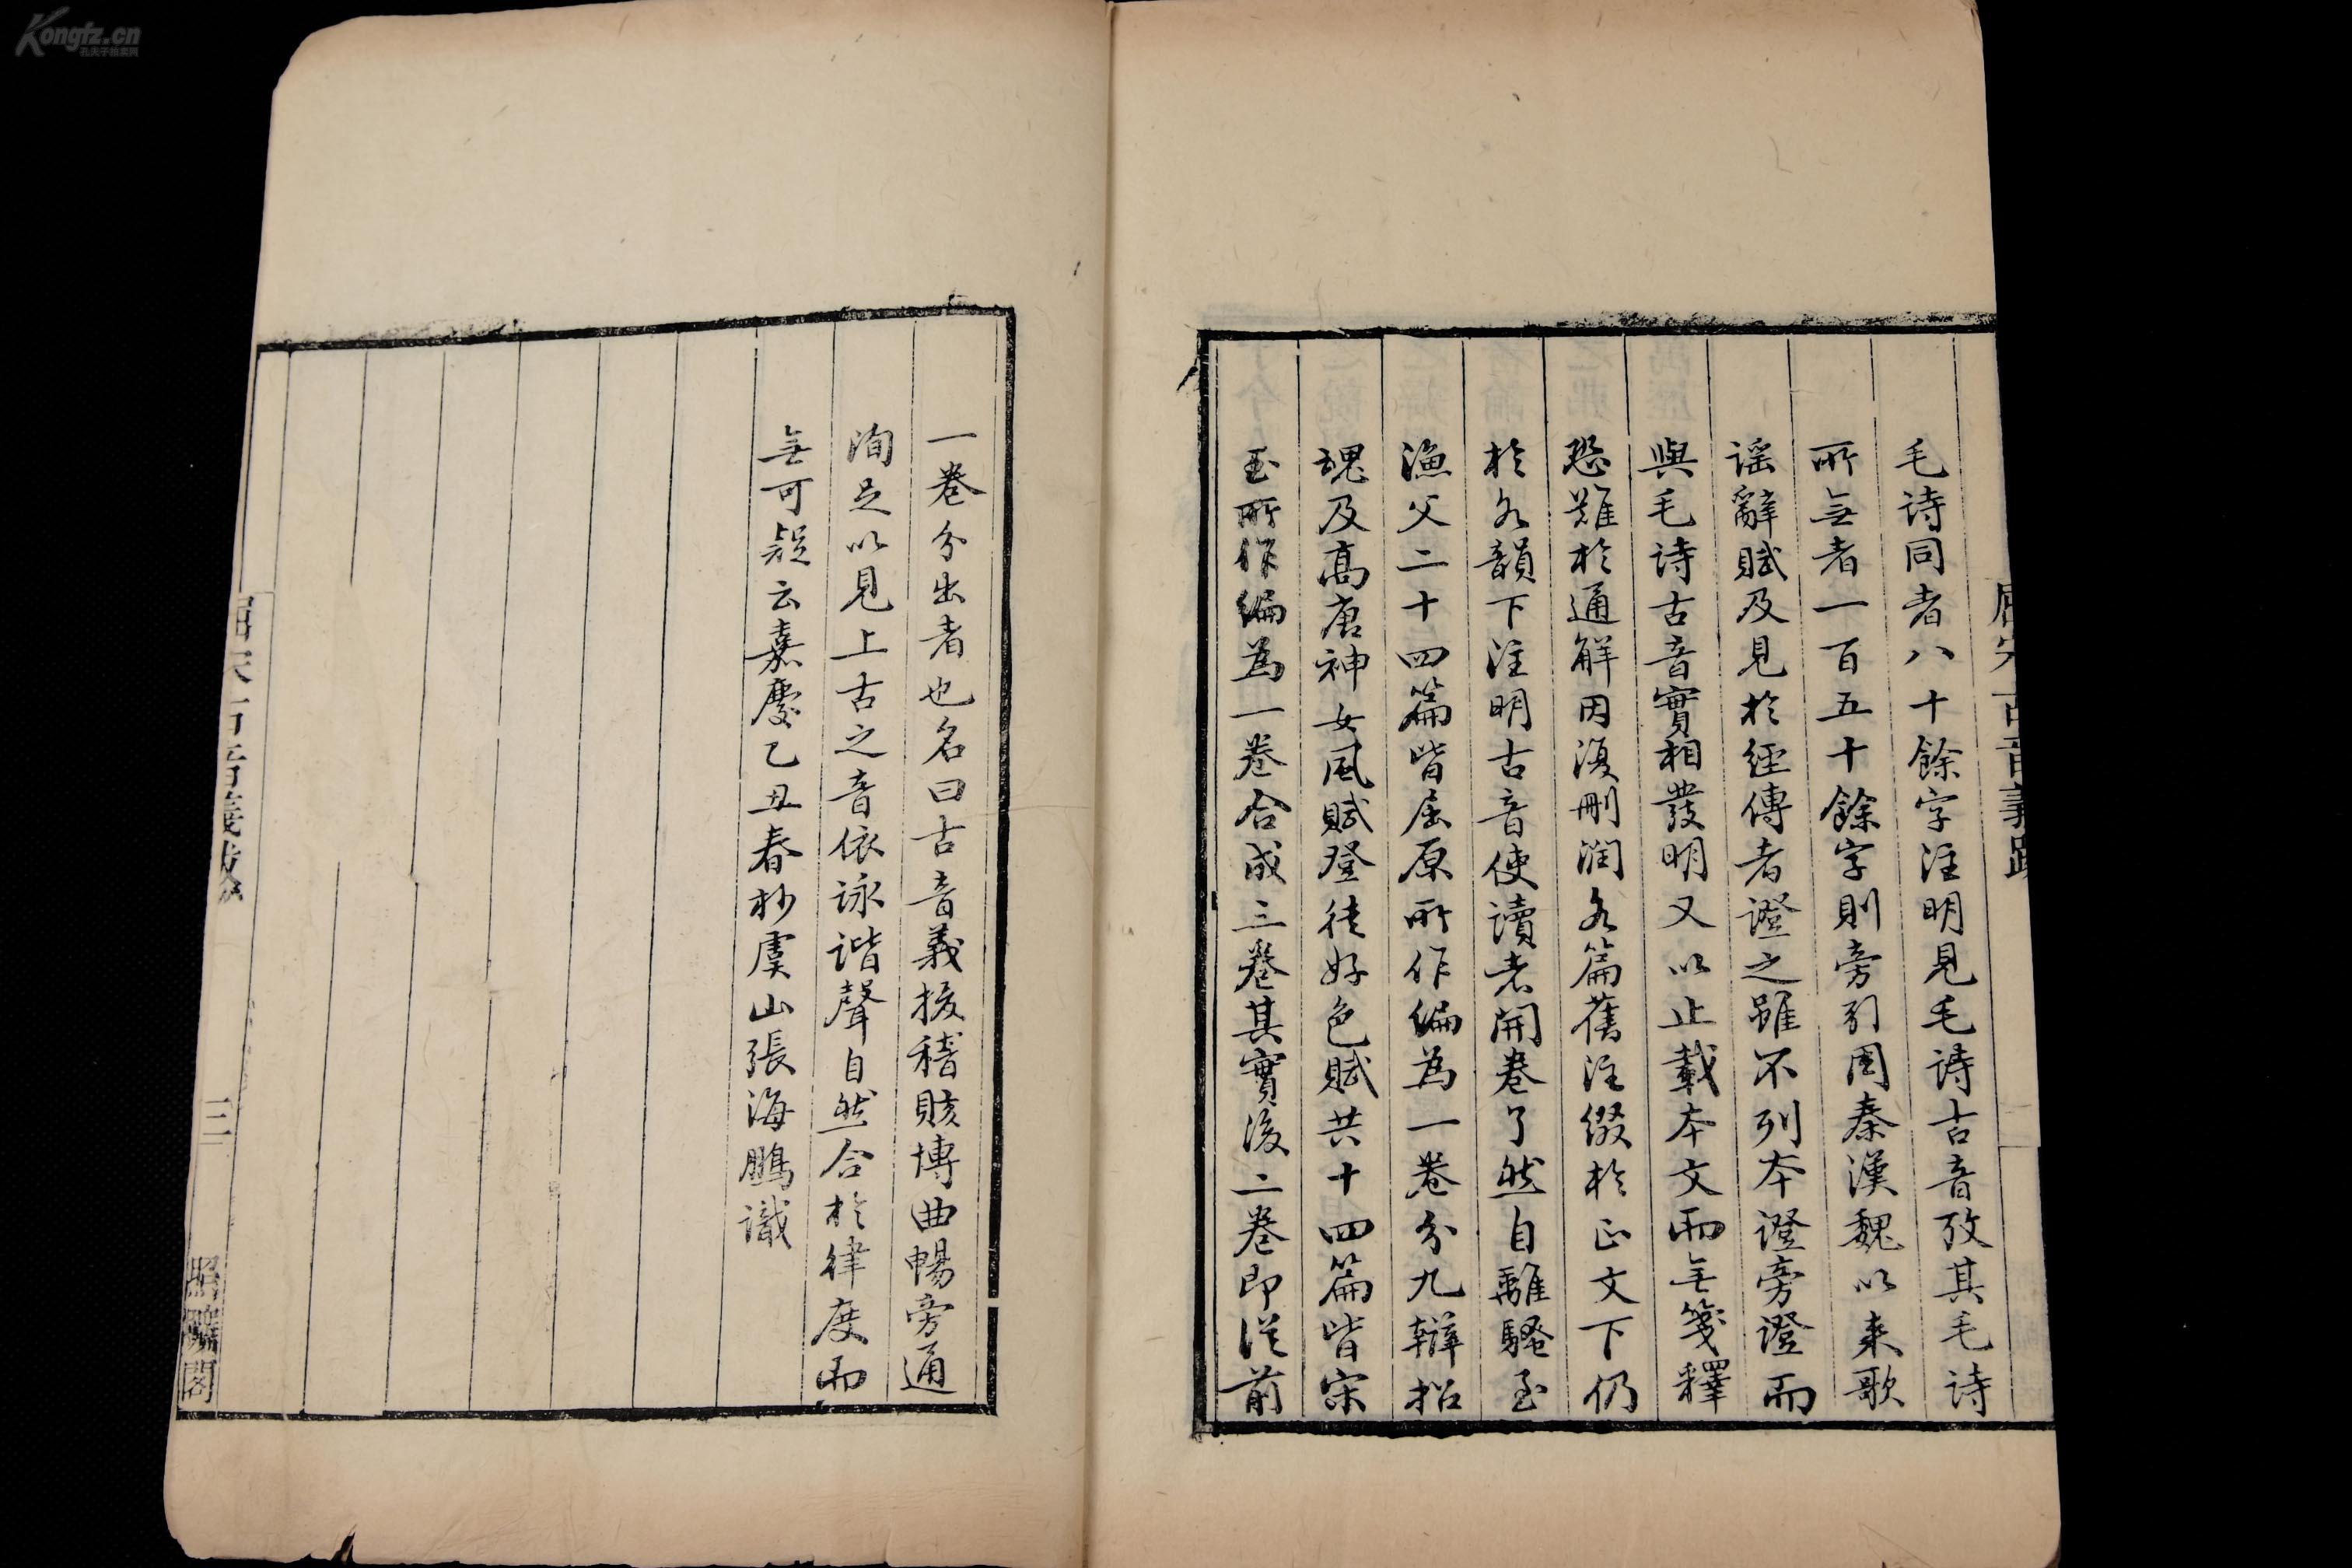 毛詩同者八十餘字注明見毛詩古音攷其毛詩
所無者一百五十餘字則旁引周秦漢魏以來歌
謡辭賦及見於經傳者證之雖不列本證旁證而
與毛詩古音實相發明又以止載本文而無箋釋
恐難於通解因復刪潤各篇舊注綴於正文下仍
於各韻下注明古音使讀者開卷了然自離騷至
漁父二十四篇皆屈原所作編為一卷分九辯招
魂及高唐神女風賦登徒好色賦共十四篇皆宋
玉所作編為一卷合成三卷其實後二卷即從前
一卷分出者也名曰古音義援稽賅博曲暢旁通
洵足以見上古之音依詠諧聲自然合於律度而
無可疑云嘉慶乙丑春杪虞山張海鵬識
三
照曠閣
Kongfz.cn
孔夫子旧书网